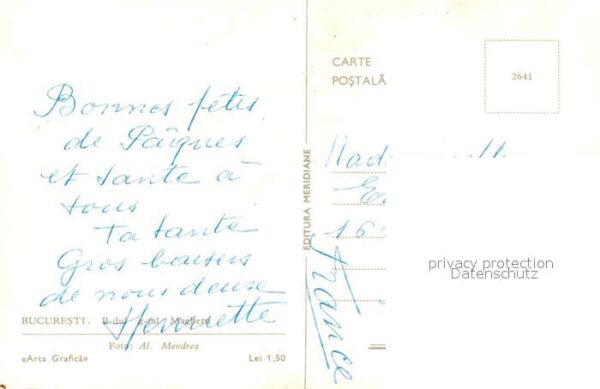 Bonnes fêtes
de Pâques
et santé à
tous
Ta tante
Gros baisers
de nous deuse
Henriette
BUCUREȘTI. B-dul G-ral Magheru
Foto: Al. Mendrea
«Arta Grafică» Lei 1,50
EDITURA MERIDIANE
CARTE
POȘTALĂ
2641
16
France
privacy protection
Datenschutz